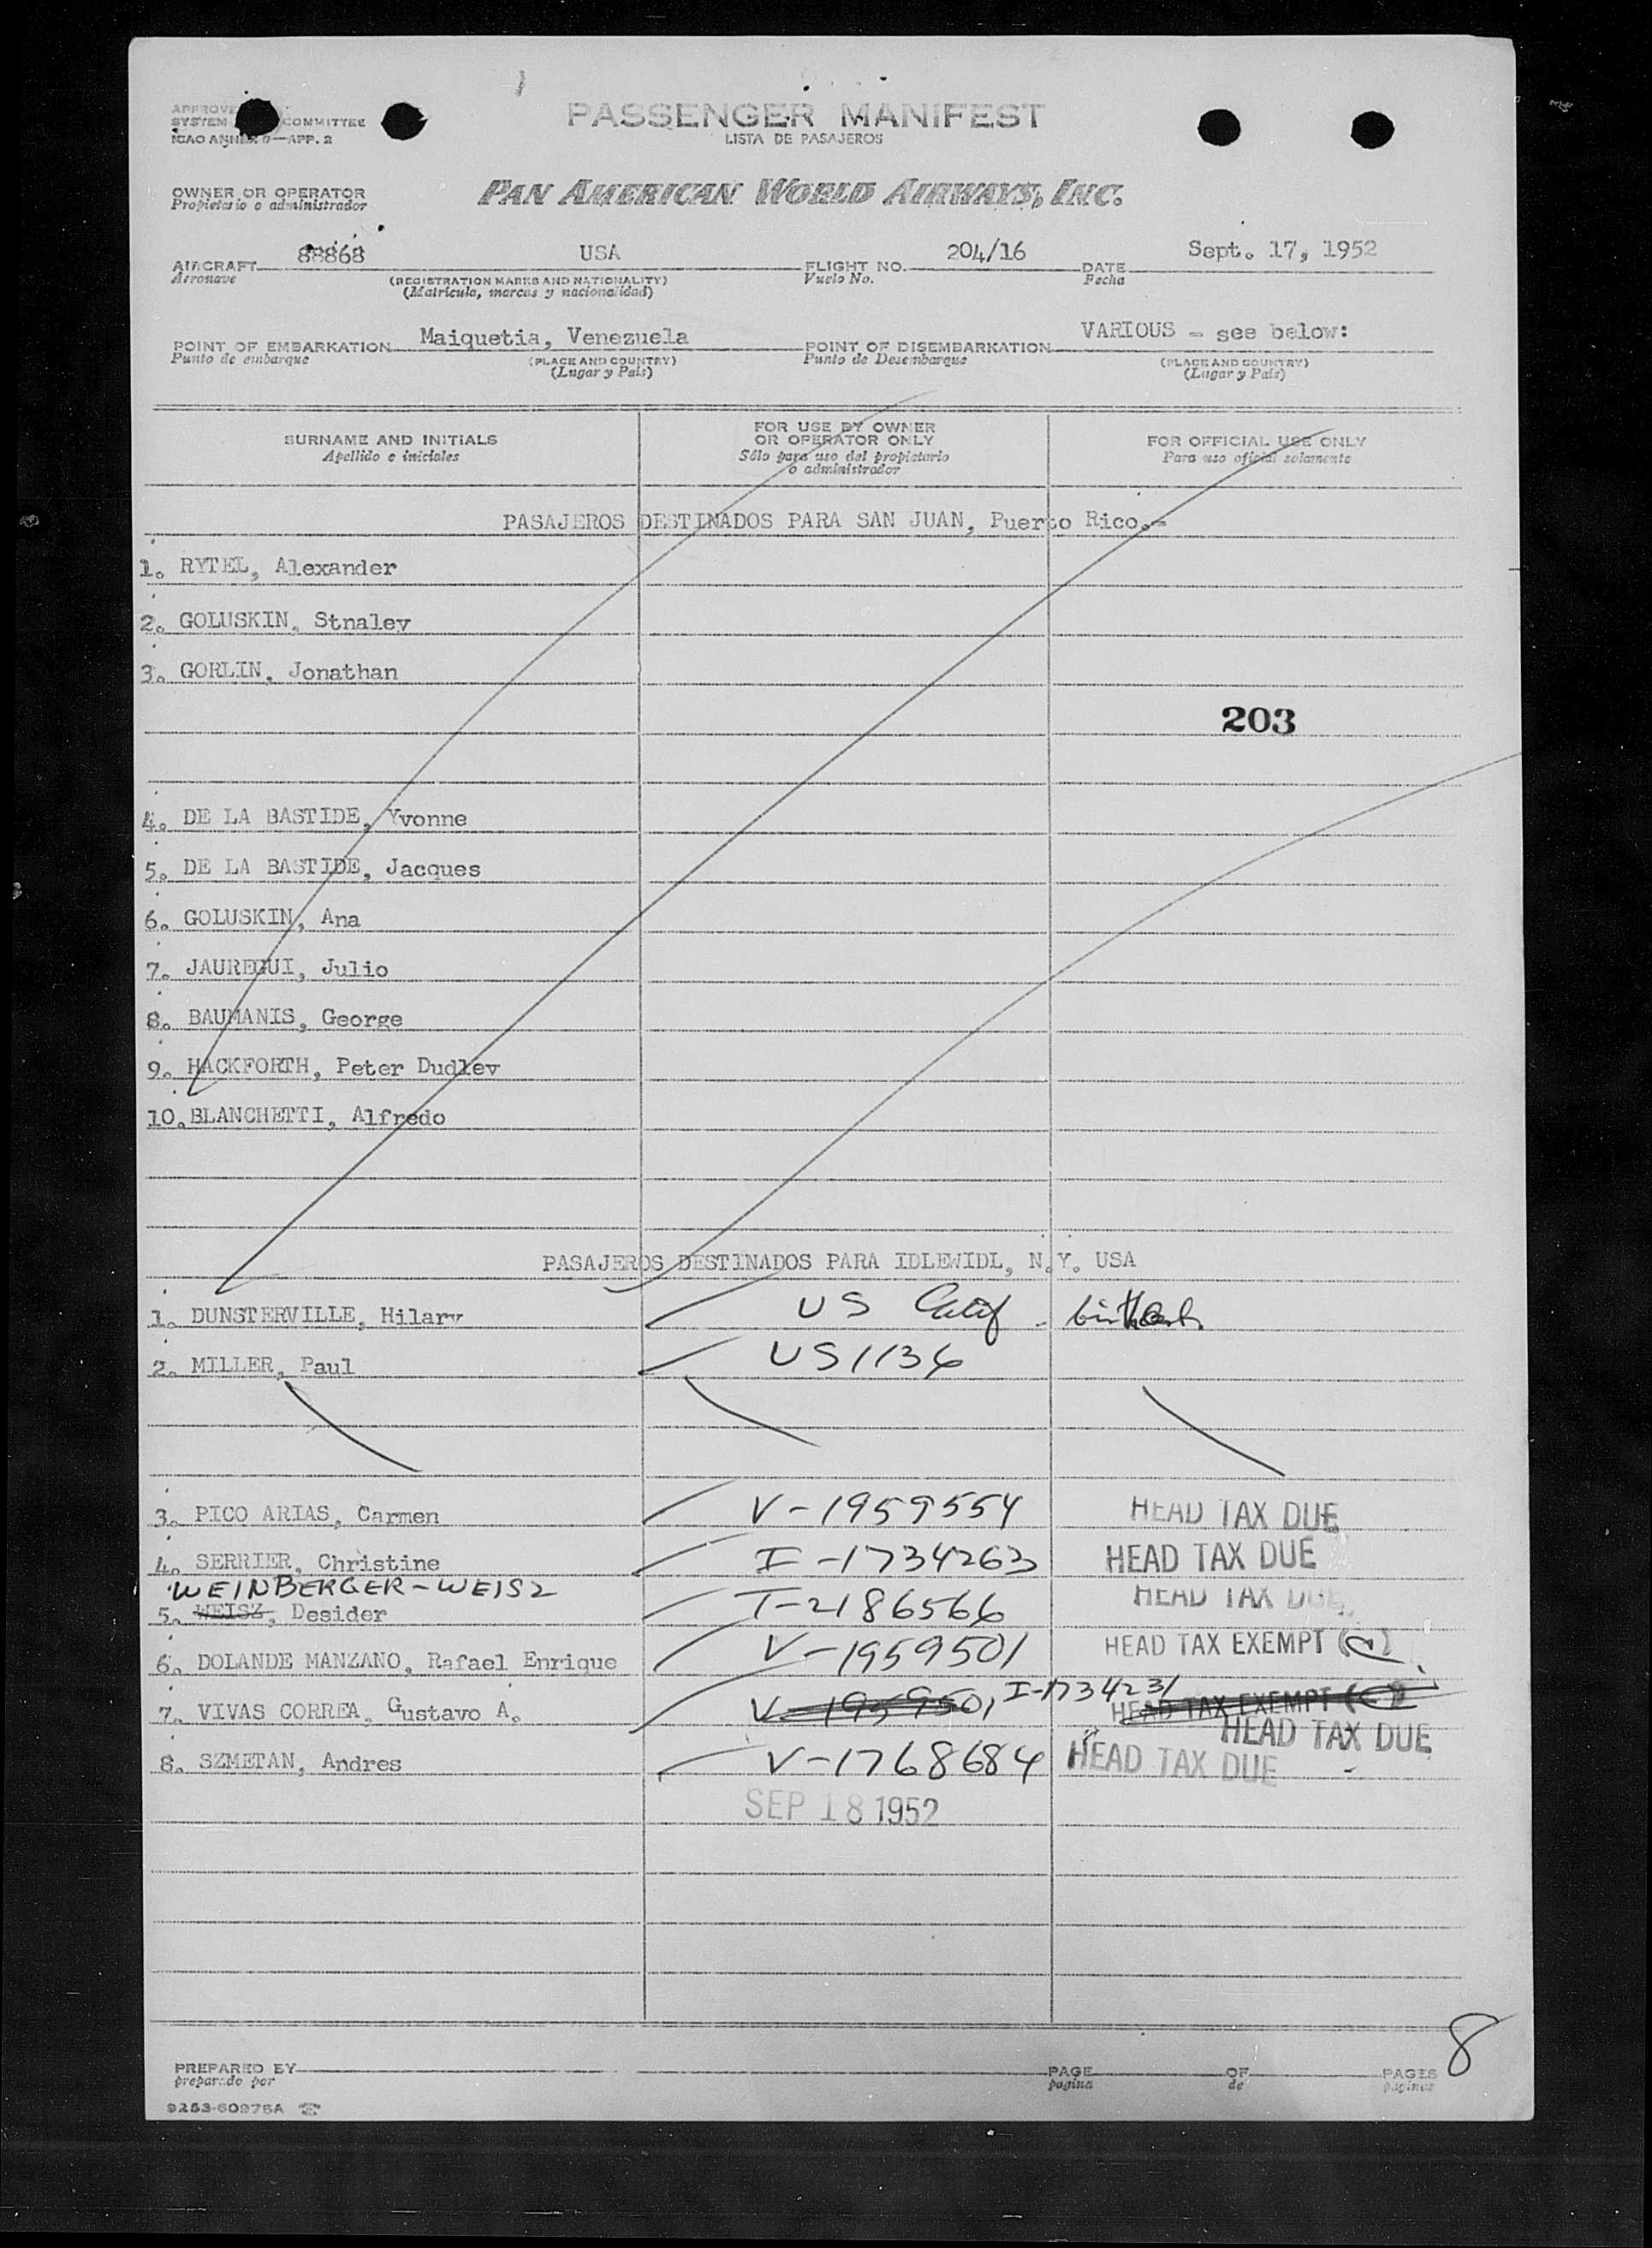 APPROVE
SYSTEM COMMITTEE
ICAO ANNEX 9—APP. 2
PASSENGER MANIFEST
LISTA DE PASAJEROS
OWNER OR OPERATOR
Propietario o administrador
PAN AMERICAN WORLD AIRWAYS, INC.
AIRCRAFT 88868 USA FLIGHT NO. 204/16 DATE Sept. 17, 1952
Aeronave (REGISTRATION MARKS AND NATIONALITY) Vuelo No. Fecha
(Matrícula, marcas y nacionalidad)
POINT OF EMBARKATION Maiquetia, Venezuela POINT OF DISEMBARKATION VARIOUS - see below:
Punto de embarque (PLACE AND COUNTRY) Punto de Desembarque (PLACE AND COUNTRY)
(Lugar y País) (Lugar y País)
SURNAME AND INITIALS
Apellido e iniciales
FOR USE BY OWNER
OR OPERATOR ONLY
Sólo para uso del propietario
o administrador
FOR OFFICIAL USE ONLY
Para uso oficial solamente
PASAJEROS DESTINADOS PARA SAN JUAN, Puerto Rico.-
1. RYTEL, Alexander
2. GOLUSKIN, Stnaley
3. GORLIN, Jonathan
203
4. DE LA BASTIDE, Yvonne
5. DE LA BASTIDE, Jacques
6. GOLUSKIN, Ana
7. JAUREGUI, Julio
8. BAUMANIS, George
9. HACKFORTH, Peter Dudley
10. BLANCHETTI, Alfredo
PASAJEROS DESTINADOS PARA IDLEWIDL, N.Y. USA
1. DUNSTERVILLE, Hilary US
2. MILLER, Paul US 1136
3. PICO ARIAS, Carmen V-1959554 HEAD TAX DUE
4. SERRIER, Christine I-1734263 HEAD TAX DUE
WEINBERGER-WEISZ
5. WEISZ, Desider T-2186566 HEAD TAX DUE
6. DOLANDE MANZANO, Rafael Enrique V-1959501 HEAD TAX EXEMPT (C)
7. VIVAS CORREA, Gustavo A. V-1959501 I-1734231 HEAD TAX EXEMPT (C)
HEAD TAX DUE
8. SZMETAN, Andres V-1768684 HEAD TAX DUE
SEP 18 1952
8
PREPARED BY PAGE OF PAGES
preparado por pagina de paginas
9253-60976A